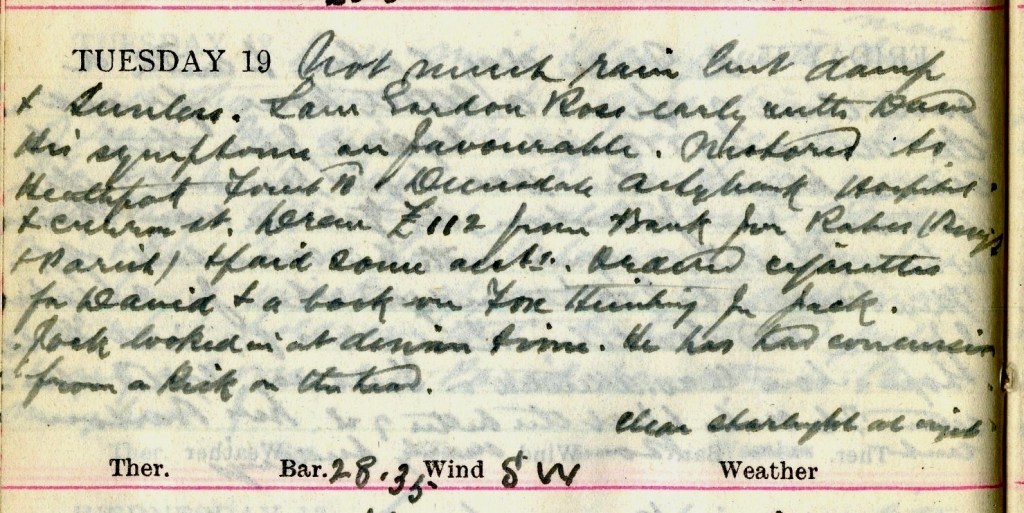 TUESDAY 19 Not much rain but damp
& sunless. Saw Gordon Ross early with David
His symptoms are favourable. Motored to
Heathpot Forest Hospital
& st. Drew £112 from Bank for Rates (
& Parish) & paid some accts. Ordered cigarettes
for David & a book on Fox Hunting for Jack.
Jack looked in at dinner time. He has had concussion
from a kick on the head.
Clear starlight at night
Ther. Bar. 28.35 Wind SW Weather